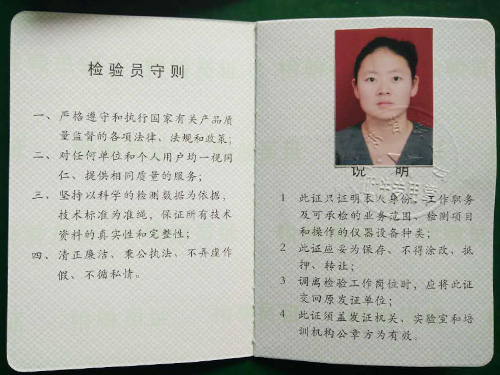 检验员守则
一、严格遵守和执行国家有关产品质
量监督的各项法律、法规和政策；
二、对任何单位和外人用户均一视同
仁、提供相同质量的服务；
三、坚持以科学的检测数据为依据，
技术标准为准绳，保证所有技术
资料的真实性和完整性；
四、清正廉洁、秉公执法、不弄虚作
假、不循私情。
说 明
1 此证只证明本人身份、工作职务
及可承检的业务范围、检测项目
和操作的仪器设备种类；
2 此证应妥为保存、不得涂改、抵
押、转让；
3 调离检验工作岗位时、应将此证
交回原发证单位；
4 此证须盖发证机关、实验室和培
训机构公章方为有效。